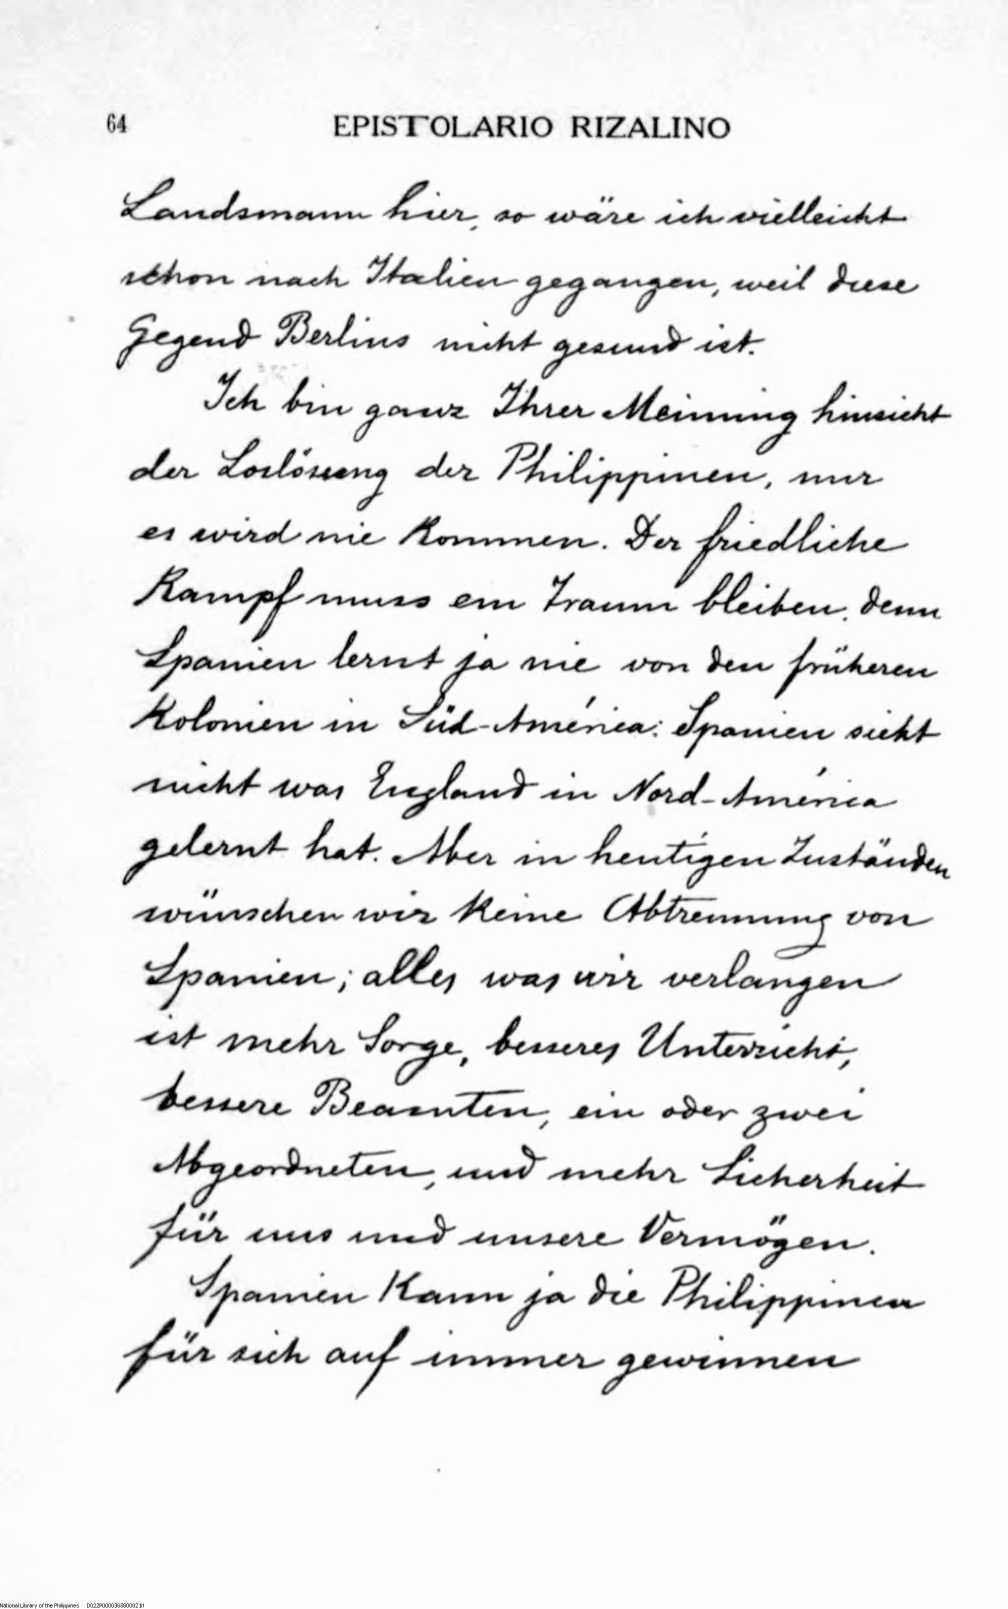 64
EPISTOLARIO RIZALINO
Landsmann hier, so wäre ich vielleicht
schon nach Italien gegangen, weil diese
Gegend Berlins nicht gesund ist.
Ich bin ganz Ihrer Meinung hinsicht
der Loslösung der Philippinen, nur
es wird nie kommen. Der friedliche
Kampf muss ein Traum bleiben, denn
Spanien lernt ja nie von den früheren
Kolonien in Süd-América: Spanien sieht
nicht was England in Nord-América
gelernt hat. Aber in heutigen Zuständen
wünschen wir keine Abtrennung von
Spanien; alles was wir verlangen
ist mehr Sorge, besseres Unterricht,
bessere Beamten, ein oder zwei
Abgeordneten, und mehr Sicherheit
für uns und unsere Vermögen.
Spanien kann ja die Philippinen
für sich auf immer gewinnen
National Library of the Philippines